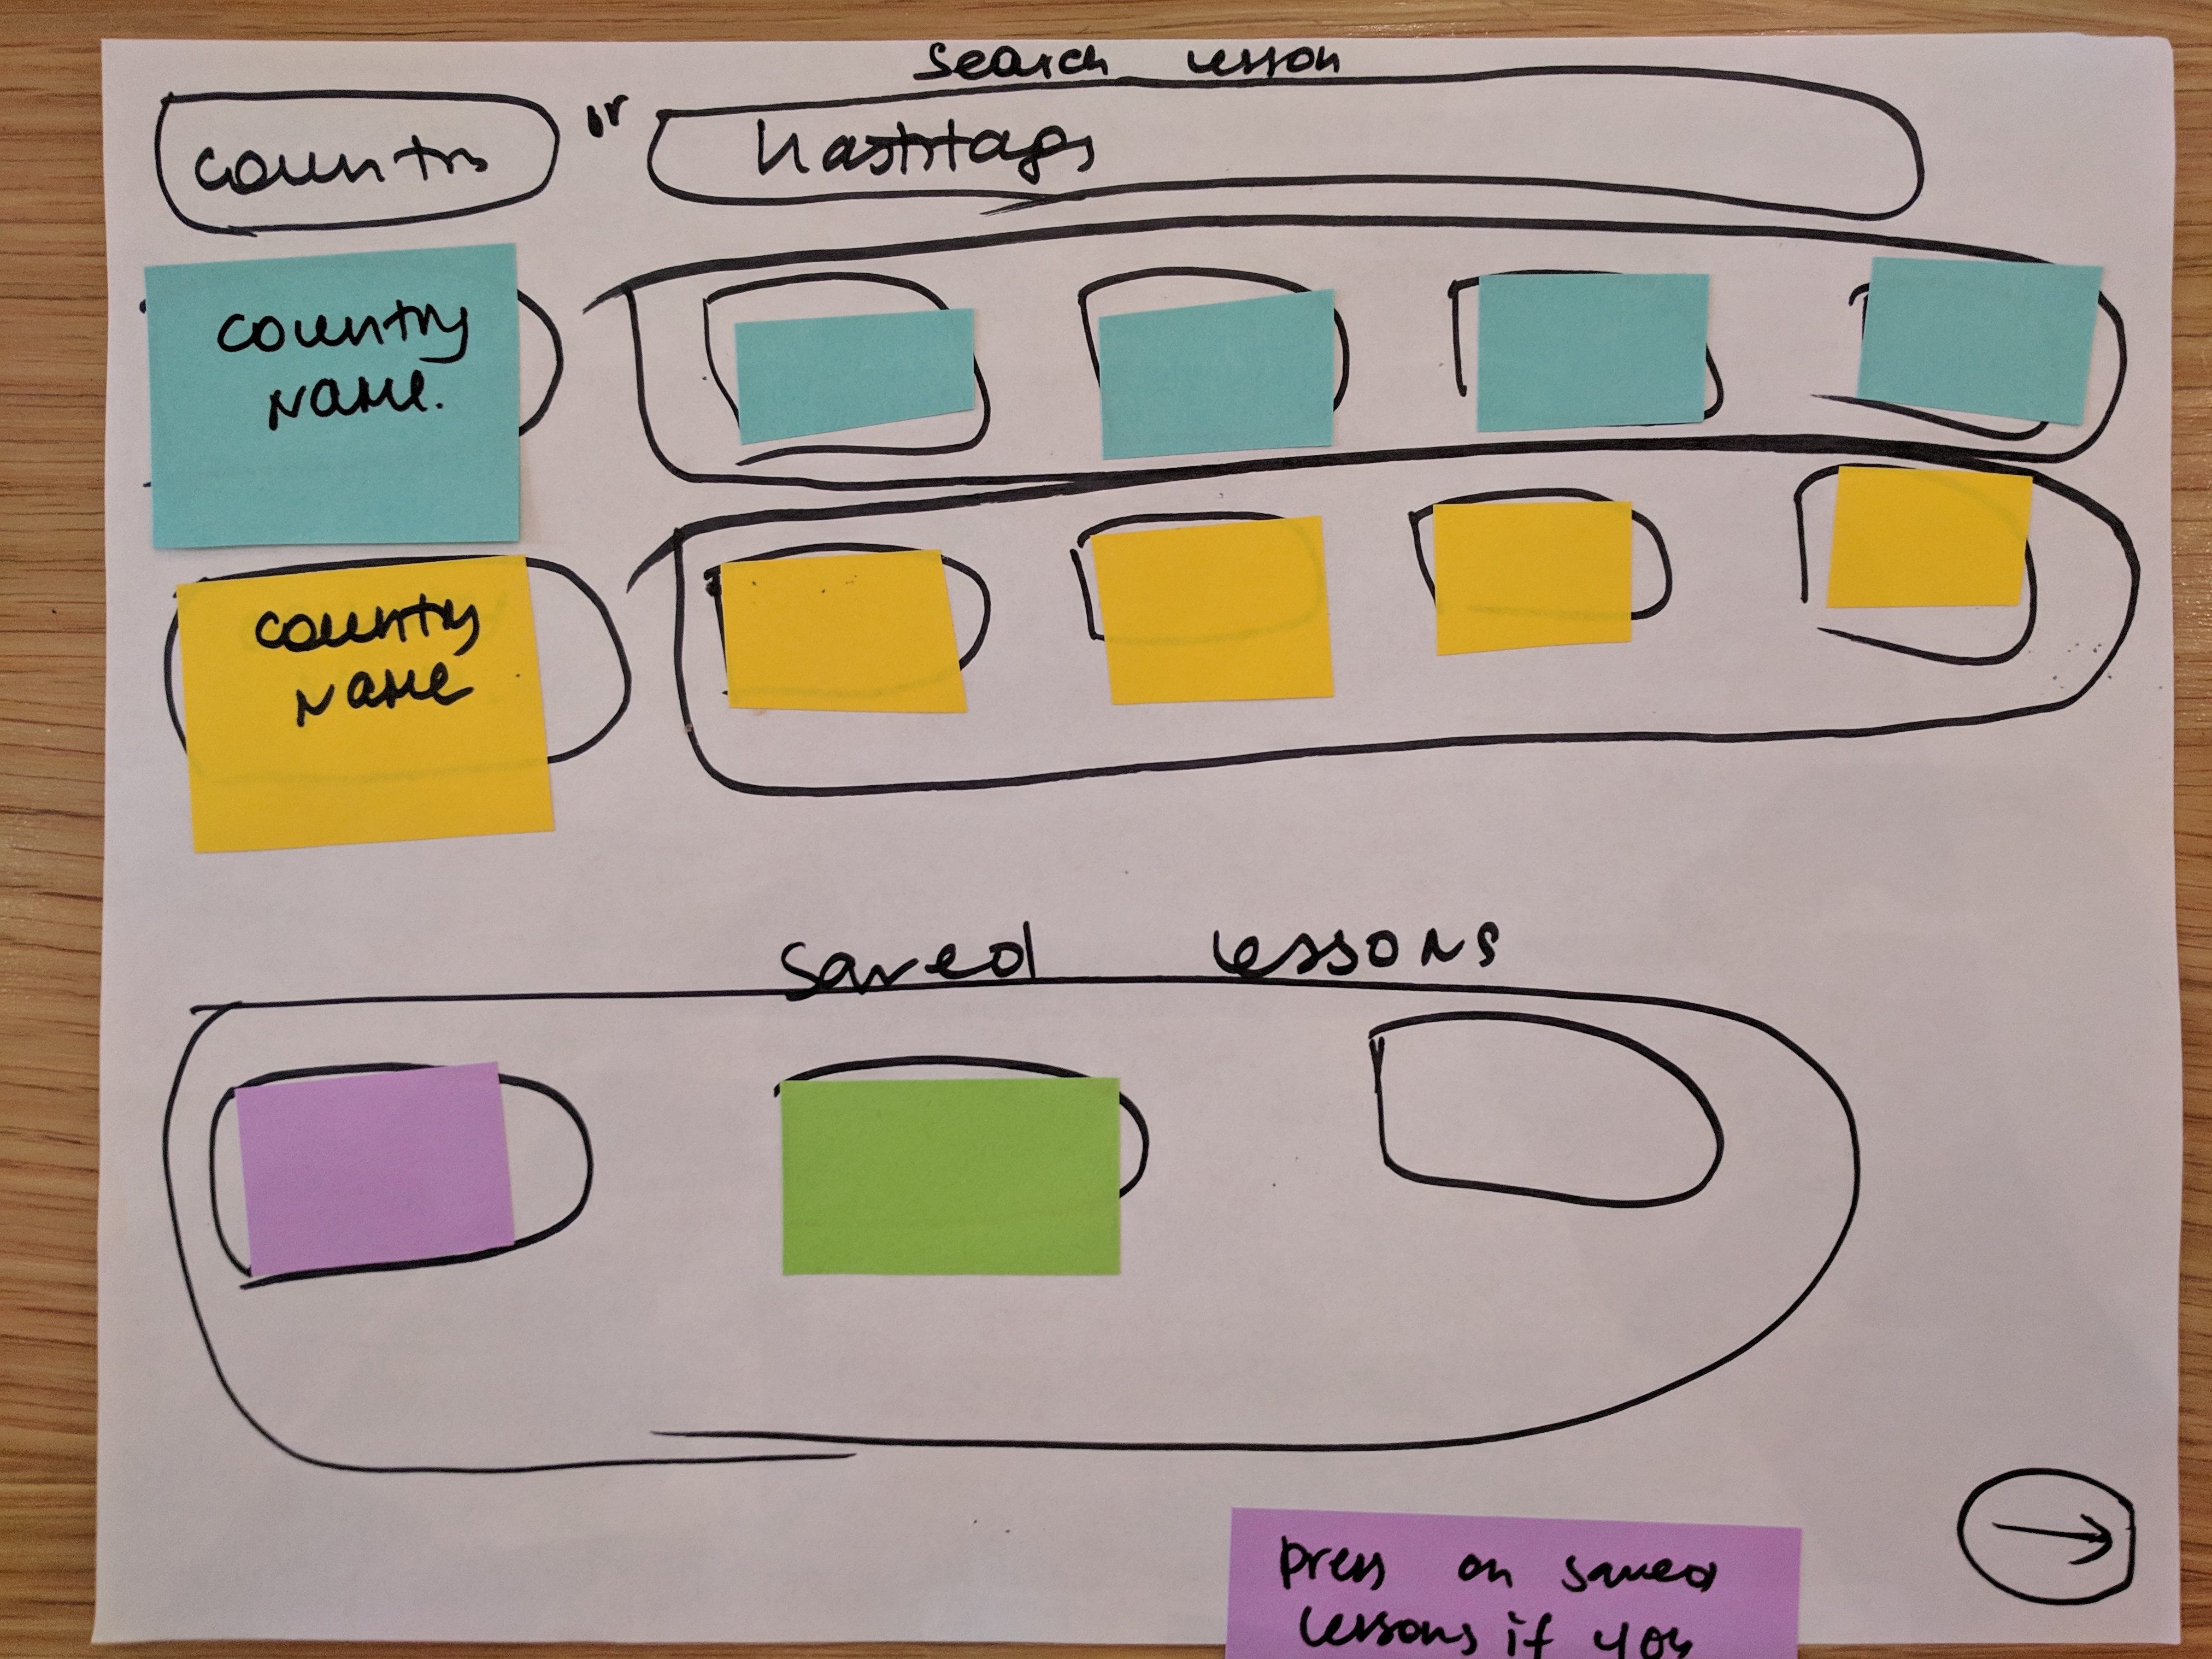 search lesson
country or hashtags
country
name.
country
name
saved lessons
press on saved
lessons if you